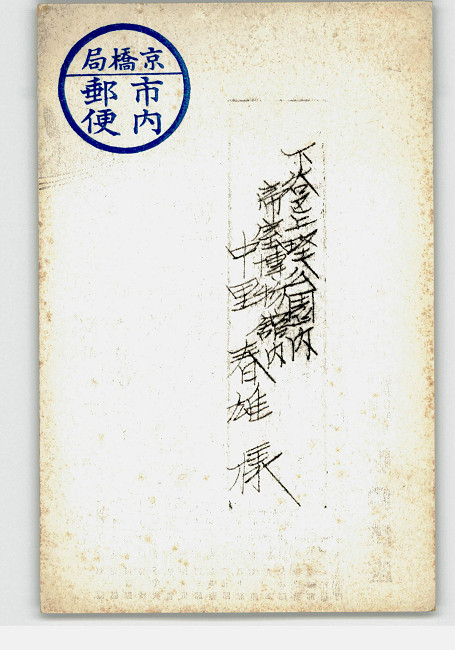 京橋局
市内
郵便
下谷区上野公園内
帝室博物館内
中里春雄様